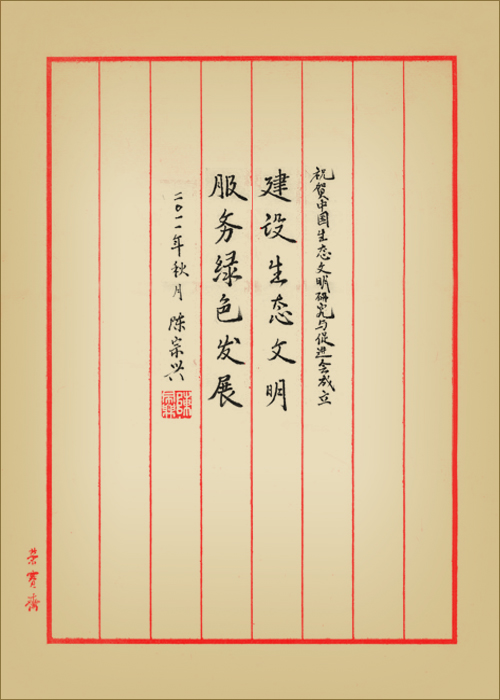 祝贺中国生态文明研究与促进会成立
建设生态文明
服务绿色发展
二〇一一年秋月 陈宗兴
陈宗兴
荣宝斋